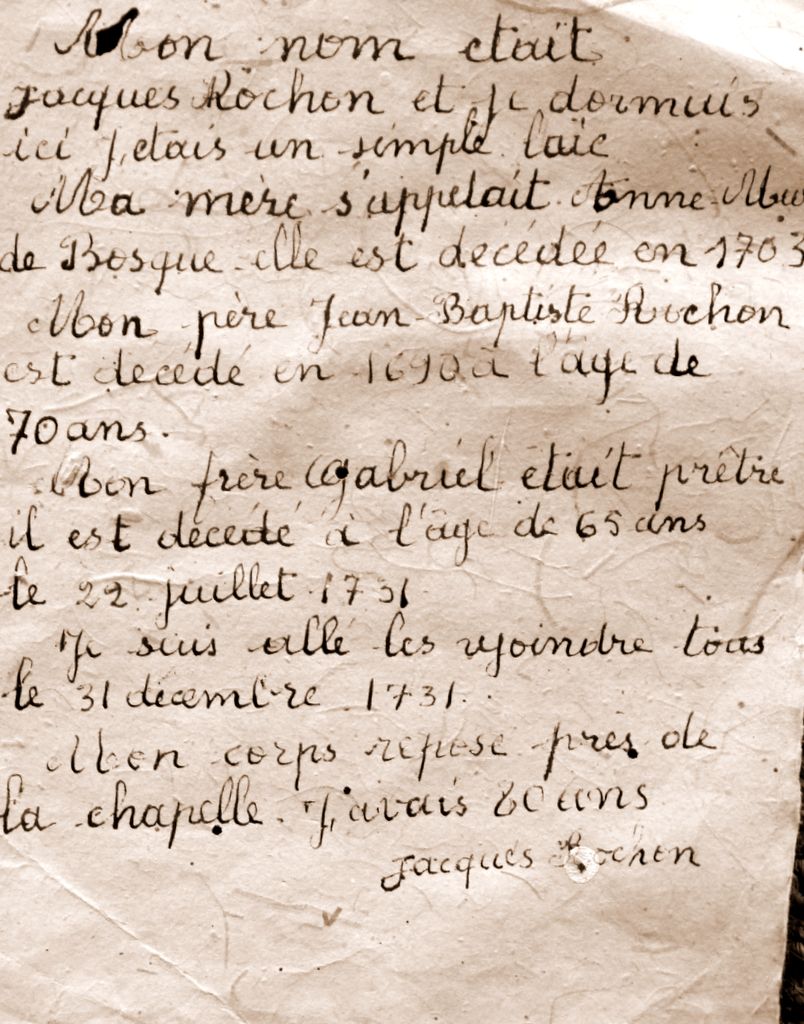 Mon nom etait
Jacques Rochon et je dormais
ici j'etais un simple laïc
Ma mère s'appelait Anne
de Bosque elle est décédée en 1703
Mon père Jean-Baptiste Rochon
est decédé en 1690 à l'âge de
70 ans.
Mon frère Gabriel était prêtre
il est décédé à l'âge de 65 ans
le 22 juillet 1731
Je suis allé les rejoindre tous
le 31 décembre 1731.
Mon corps repose près de
la chapelle. J'avais 80 ans
Jacques Rochon